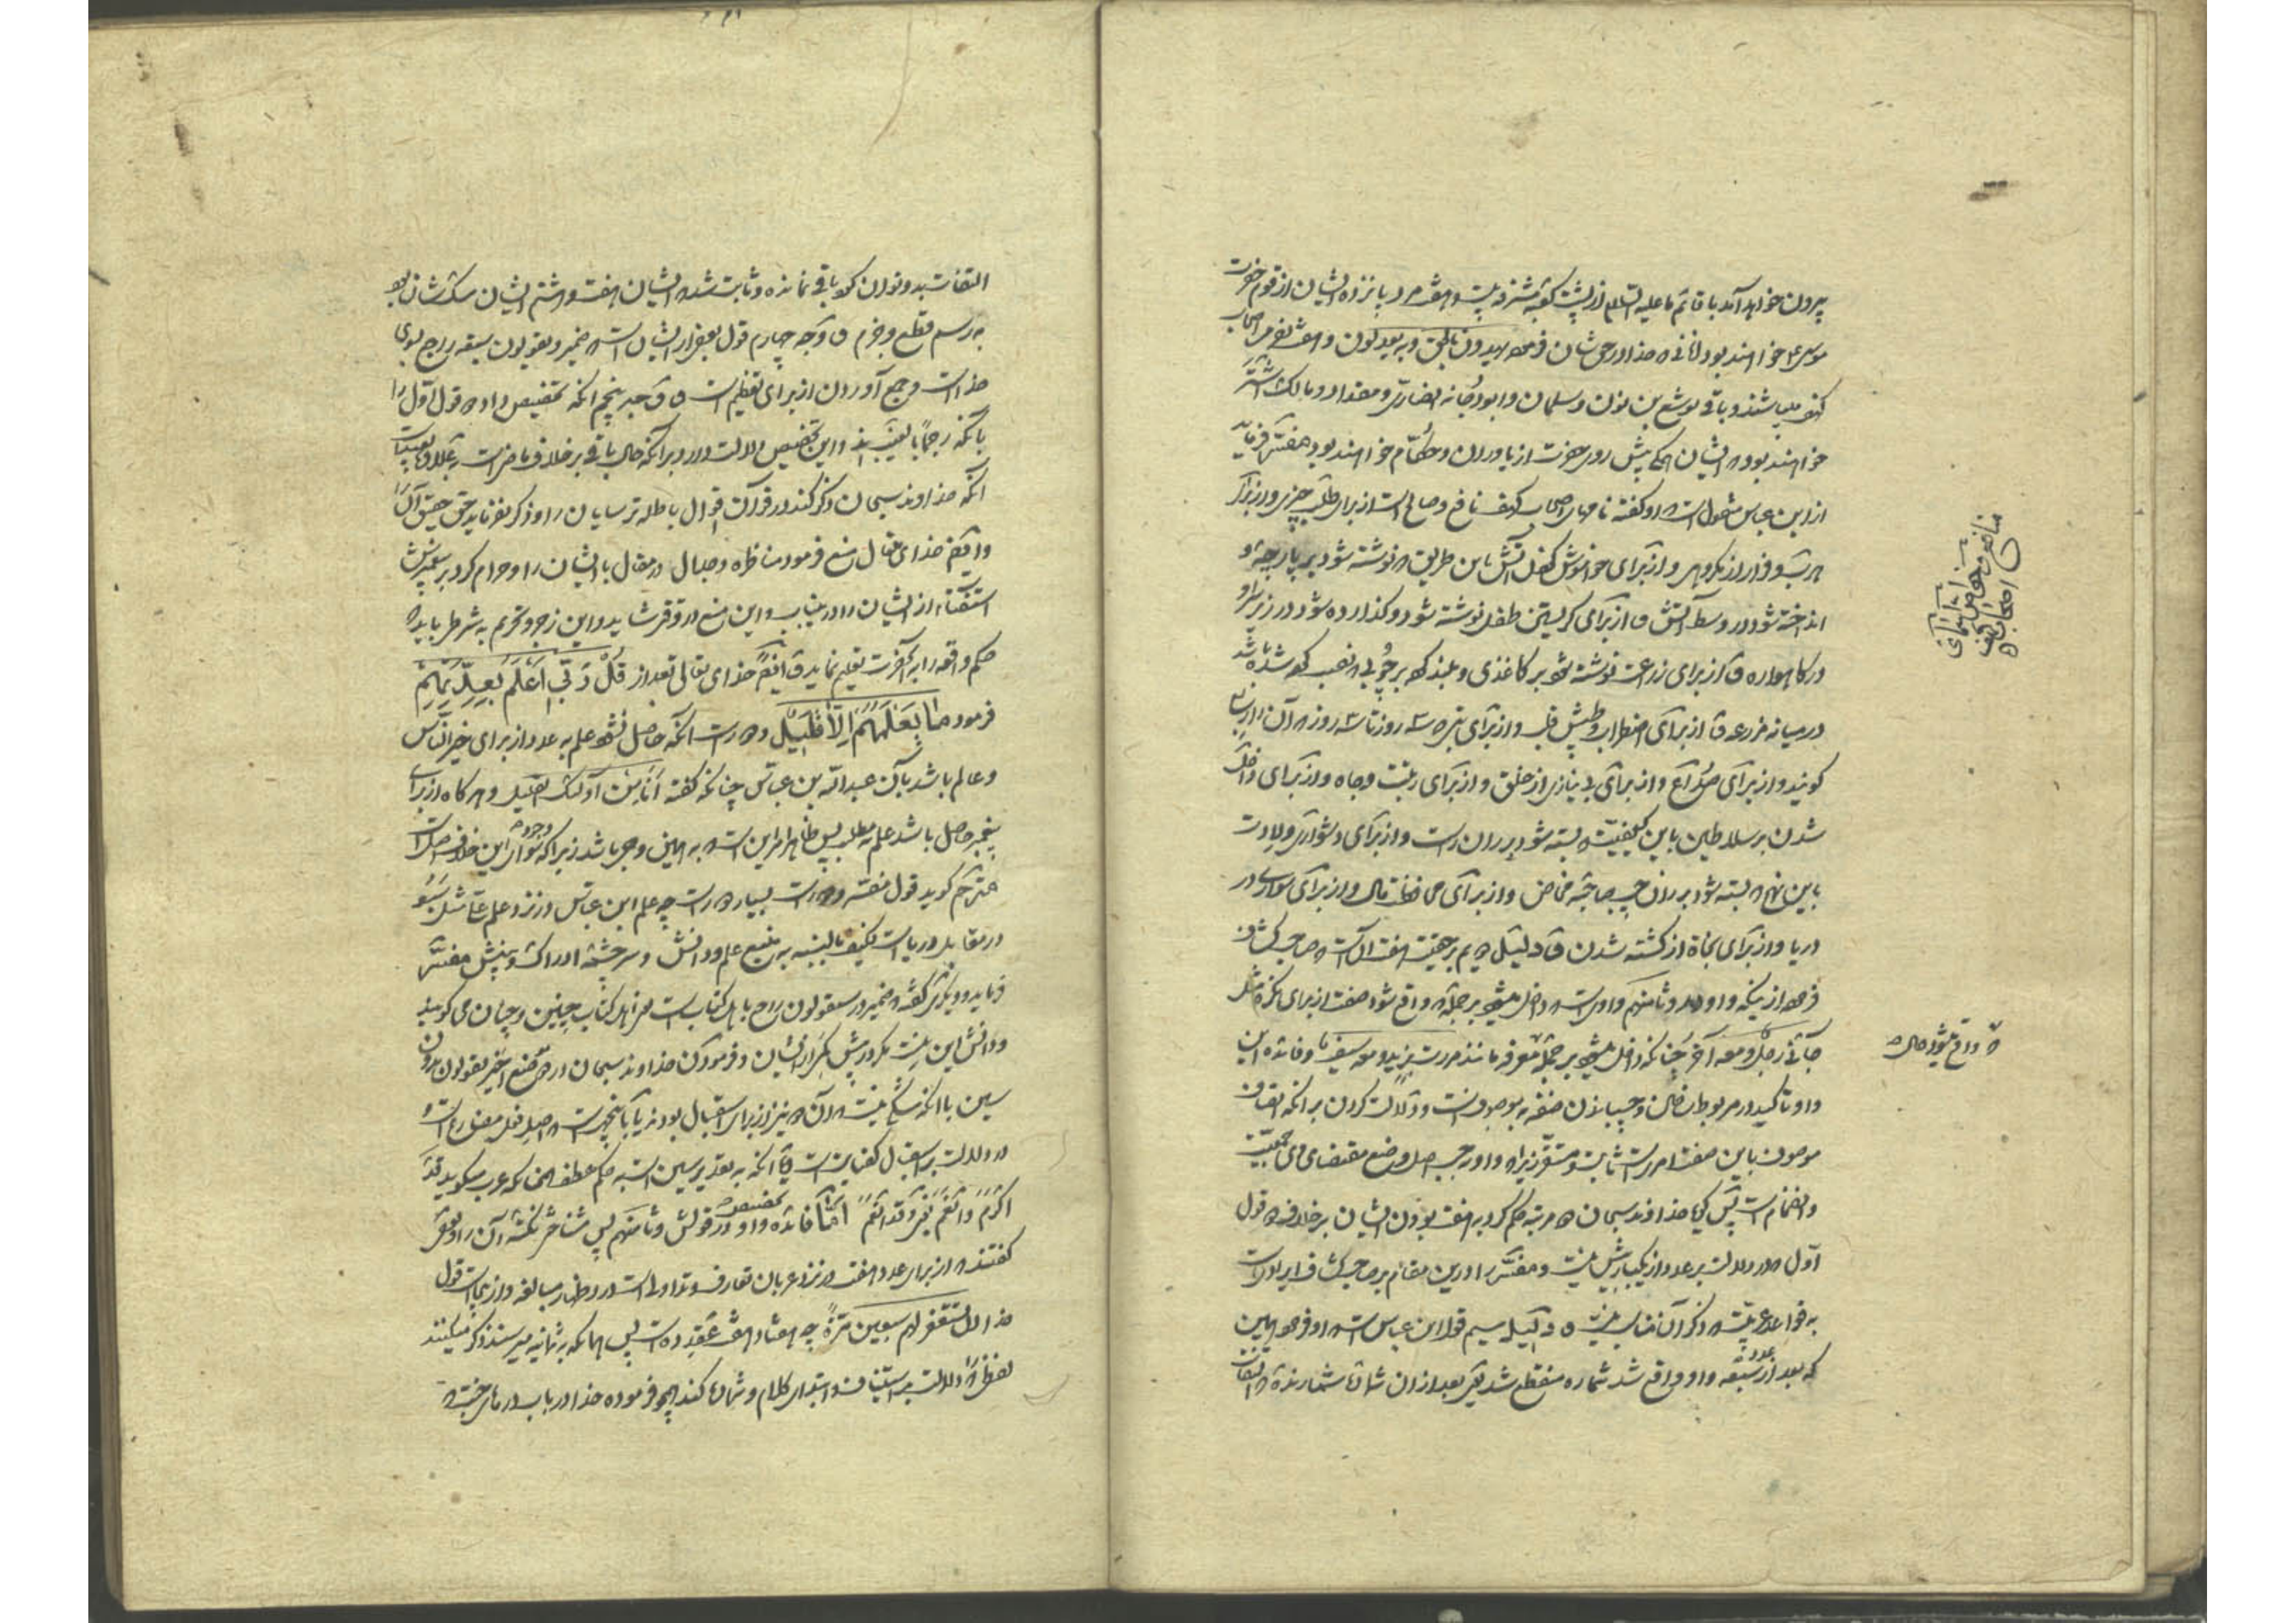 بیرون خواهد آمد با قائم ما علیه السلام از پشت کعبه مشرفه بیست و هفت مرد پانزده ایشان از قوم حضرت
موسی ع خواهند بود آنانی که خدا در حق شان فرموده یهدون بالحق و به یعدلون و هفت نفر اصحاب
کهف میباشند و باقی یوشع بن نون و سلمان و ابو دجانه انصاری و مقداد و مالک اشتر
خواهند بود که ایشان همگی پیش روی حضرت از یاوران و حکام خواهند بود مفسر فرماید
از ابن عباس منقول است که او گفته نامهای اصحاب کهف نافع و صالح است از برای طلب چیزی و از برای
هرب و فرار از مکروهی و از برای خواموش کفل آتش باین طریق که نوشته شود بر پارچه و
انداخته شود در وسط آتش و از برای گریستن طفل نوشته شود و گذارده شود در زیر سر او
در گاهواره و از برای زراعت نوشته شود بر کاغذی و بلند که بر چوبی که نصب کرده شده باشد
در میانه مزرعه و از برای اضطراب و طپش قلب و از برای تب سه روز تا سه روز که آنرا
گویند و از برای صداع و از برای بی نیازی از خلق و از برای زینت و جاه و از برای داخل
شدن بر سلاطین باین کیفیت که بسته شود بر ران راست و از برای دشواری ولادت
باین نهج که بسته شود بر ران چپ صاحبه مخاض و از برای محافظت مال و از برای سواری در
دریا و از برای نجاة از کشته شدن و دلیل دویم بر حقیت هفت آنست که صاحب کشاف
فرموده از اینکه واو در و ثامنهم واوی است که داخل میشود بر جمله که واقع شود صفت از برای نکره مثل
جائنی رجل و معه آخر چنانکه داخل میشود بر جمله معرفه مانند مررت بزید و معه سیف و فائده این
واو تاکید در مربوط ساختن و چسبانیدن صفة به موصوفست و دلالت کردن بر آنکه اتصاف
موصوف باین صفت امریست ثابت و مستقر زیرا که واو بحسب اصل وضع مقتضای وی جمعیت
و انضمام است پس گویا خداوند سبحان دو مرتبه حکم کرد به هفت بودن ایشان بر خلاف دو قول
اول که در دلالت بر عدد از یکبار بیش نیست و مفسر را در این مقام بر صاحب کشاف ایرادیست
به قواعد عربیت که ذکر آن مناسب نیست و دلیل سیم قول ابن عباس است که او فرموده همین
که بعد از عدد سبعه واو واقع شد شماره منقطع شد یعنی بعد از آن شماره شمارنده که
منافع و خواص اسمای اصحاب کهف
که واقع میشود حال
التفات بدو توان کرد باقی نمانده و ثابت شد که ایشان هفت و هشتم ایشان سگ شان بود
به رسم قطع و جزم و وجه چهارم قول بعضی از ایشانست که ضمیر در یقولون سبعه راجع بسوی
خداست و جمع آوردن از برای تعظیم است و وجه پنجم آنکه تخصیص داده قول اول را
بآنکه رجما بالغیب و این تخصیص دلالت دارد بر آنکه حال باقی بر خلاف
آنکه خداوند سبحان ذکر کند در قرآن اقوال باطله ترسایان را و ذکر نفرماید حق حقیق آنرا
و ایضا خدای تعالی منع فرمود مناظره و جدال در مقال با ایشان را و حرام کرد بر پیغمبرش
استفتاء از ایشان را در این باب و این منع در وقتی شاید و این زجر و تحریم به شرطی باید که
حکم واقعه را به آنحضرت تعلیم نماید و ایضا خدای تعالی بعد از قل ربی اعلم بعدتهم
فرمود ما یعلمهم الا قلیل و دور است آنکه حاصل نشود علم به عدد از برای خیر الناس
و عالم باشد بآن عبدالله بن عباس چنانکه گفته انا من اولئک القلیل و هر گاه از برای
پیغمبر حاصل باشد علم به مطلب پس ظاهر امر این است که به همین وحی باشد زیرا که وجود سوای این خلاف اصل است
مترجم گوید قول مفسر که دور است بسیار دور است چه علم ابن عباس در نزد علم
در مقابل دریاست فکیف بالنسبه به منبع علم و دانش و سر چشمه ادراک و بینش مفسر
فرماید و دیگری گفته که ضمیر در سیقولون راجع باهل کتابست یعنی اهل کتاب چنین و چنان می گویند
و دانش این نیست مگر در پیش ایشان و فرمودن خداوند سبحان در موضع اخیر یقولون بدون
سین باآنکه شکی نیست که آن نیز از برای استقبال بود
در دلالت بر استقبال کفایتست و یا آنکه به تقدیر سین است به حکم عطف همچنانکه عرب میگوید قد
اکرم و انعم یعنی و قد انعم اما فائده واو و تخصیص در قولش و ثامنهم پس مشناختی نکته آن را و بعضی
گفتند که از برای عدد هفت در نزد عربان تعارف و تداولی است در اظهار مبالغه و از اینجاست قول
خدا ان تستغفر لهم سبعین مرة چه هفتاد هفت عقد ده است پس همانکه به ثمانیه میرسند ذکر میکنند
لفظی را که دلالت بر استیناف و ابتدای کلام و شماره کند همچو فرموده خدا در باب درهای جنت که